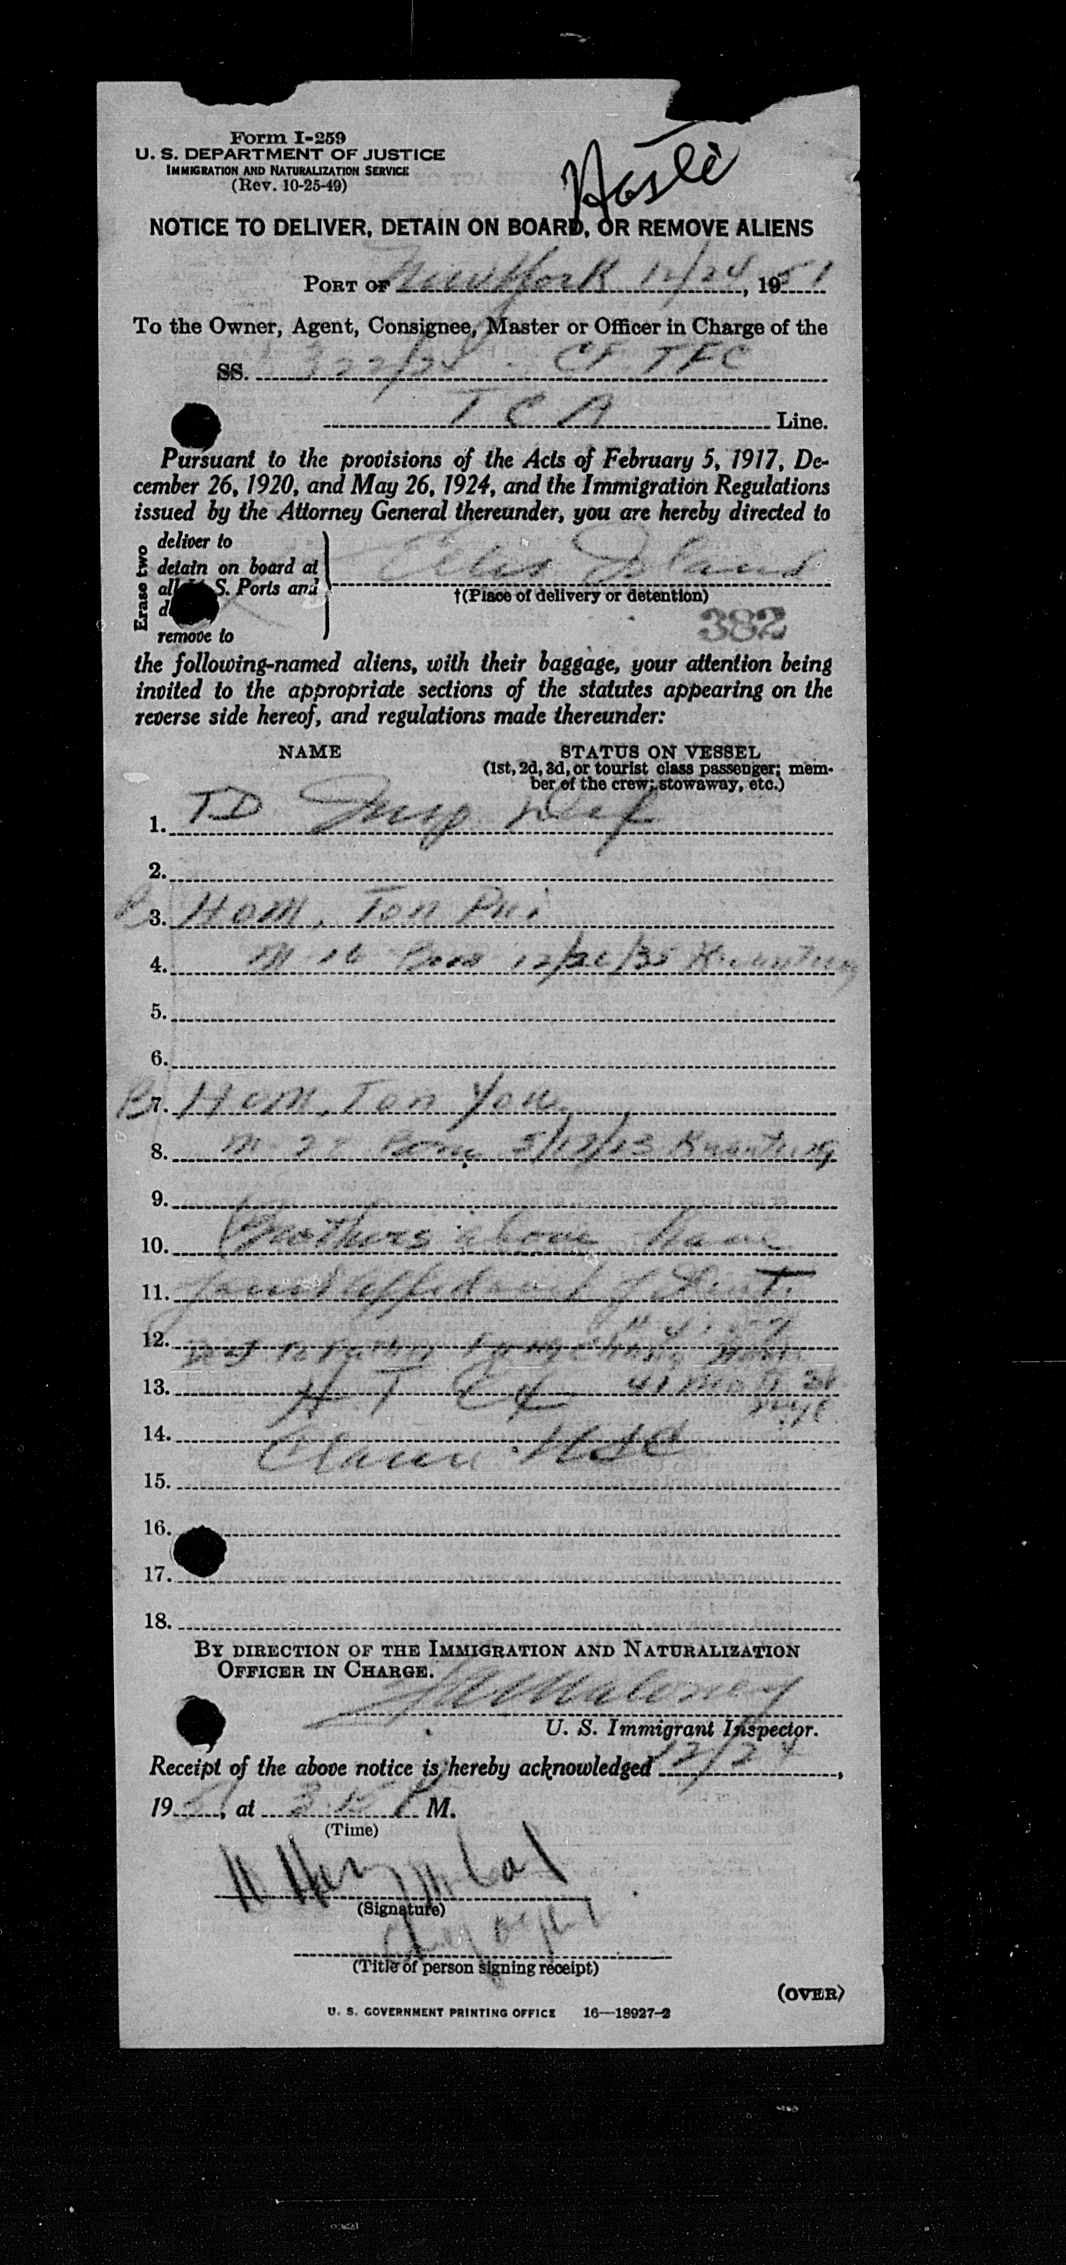 Form I-259
U. S. DEPARTMENT OF JUSTICE
IMMIGRATION AND NATURALIZATION SERVICE
(Rev. 10-25-49)
NOTICE TO DELIVER, DETAIN ON BOARD, OR REMOVE ALIENS
PORT OF New York 12/24, 1951
To the Owner, Agent, Consignee, Master or Officer in Charge of the
SS. 322/24 - CF TFC
TCA Line.
Pursuant to the provisions of the Acts of February 5, 1917, De-
cember 26, 1920, and May 26, 1924, and the Immigration Regulations
issued by the Attorney General thereunder, you are hereby directed to
Erase two
deliver to
detain on board at
all S. Ports and
remove to
Ellis Island
†(Place of delivery or detention)
382
the following-named aliens, with their baggage, your attention being
invited to the appropriate sections of the statutes appearing on the
reverse side hereof, and regulations made thereunder:
NAME
STATUS ON VESSEL
(1st, 2d, 3d, or tourist class passenger; mem-
ber of the crew; stowaway, etc.)
1. TD
2.
3. Hom, Ton Pui
4. M 16 Born 12/26/35 Kwantung
5.
6.
7. Hom, Ton You
8. M Born 5/12/13 Kwantung
9.
10. Brothers above have
11. joint affidavit of
12.
13. H T 41 Mott St
NYC
14. Claim USC
15.
16.
17.
18.
BY DIRECTION OF THE IMMIGRATION AND NATURALIZATION
OFFICER IN CHARGE.
Maloney
U. S. Immigrant Inspector.
Receipt of the above notice is hereby acknowledged 12/24,
1951, at 3:15 P M.
(Time)
(Signature)
(Title of person signing receipt)
(OVER)
U. S. GOVERNMENT PRINTING OFFICE 16—18927-2